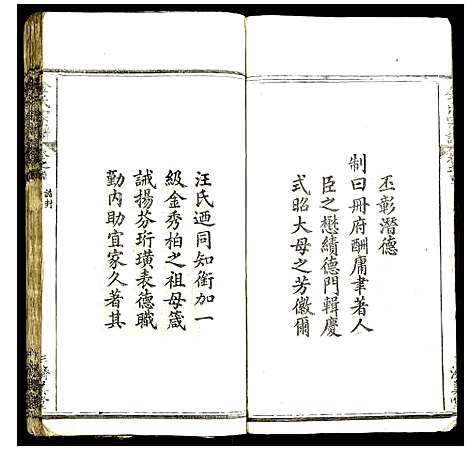 丕彰潛德
制曰冊府酬庸聿著人
臣之懋績德門輯慶
式昭大母之芳徽爾
汪氏迺同知銜加一
級金秀柏之祖母箴
誡揚芬珩璜表德職
勤內助宜家久著其
誥封